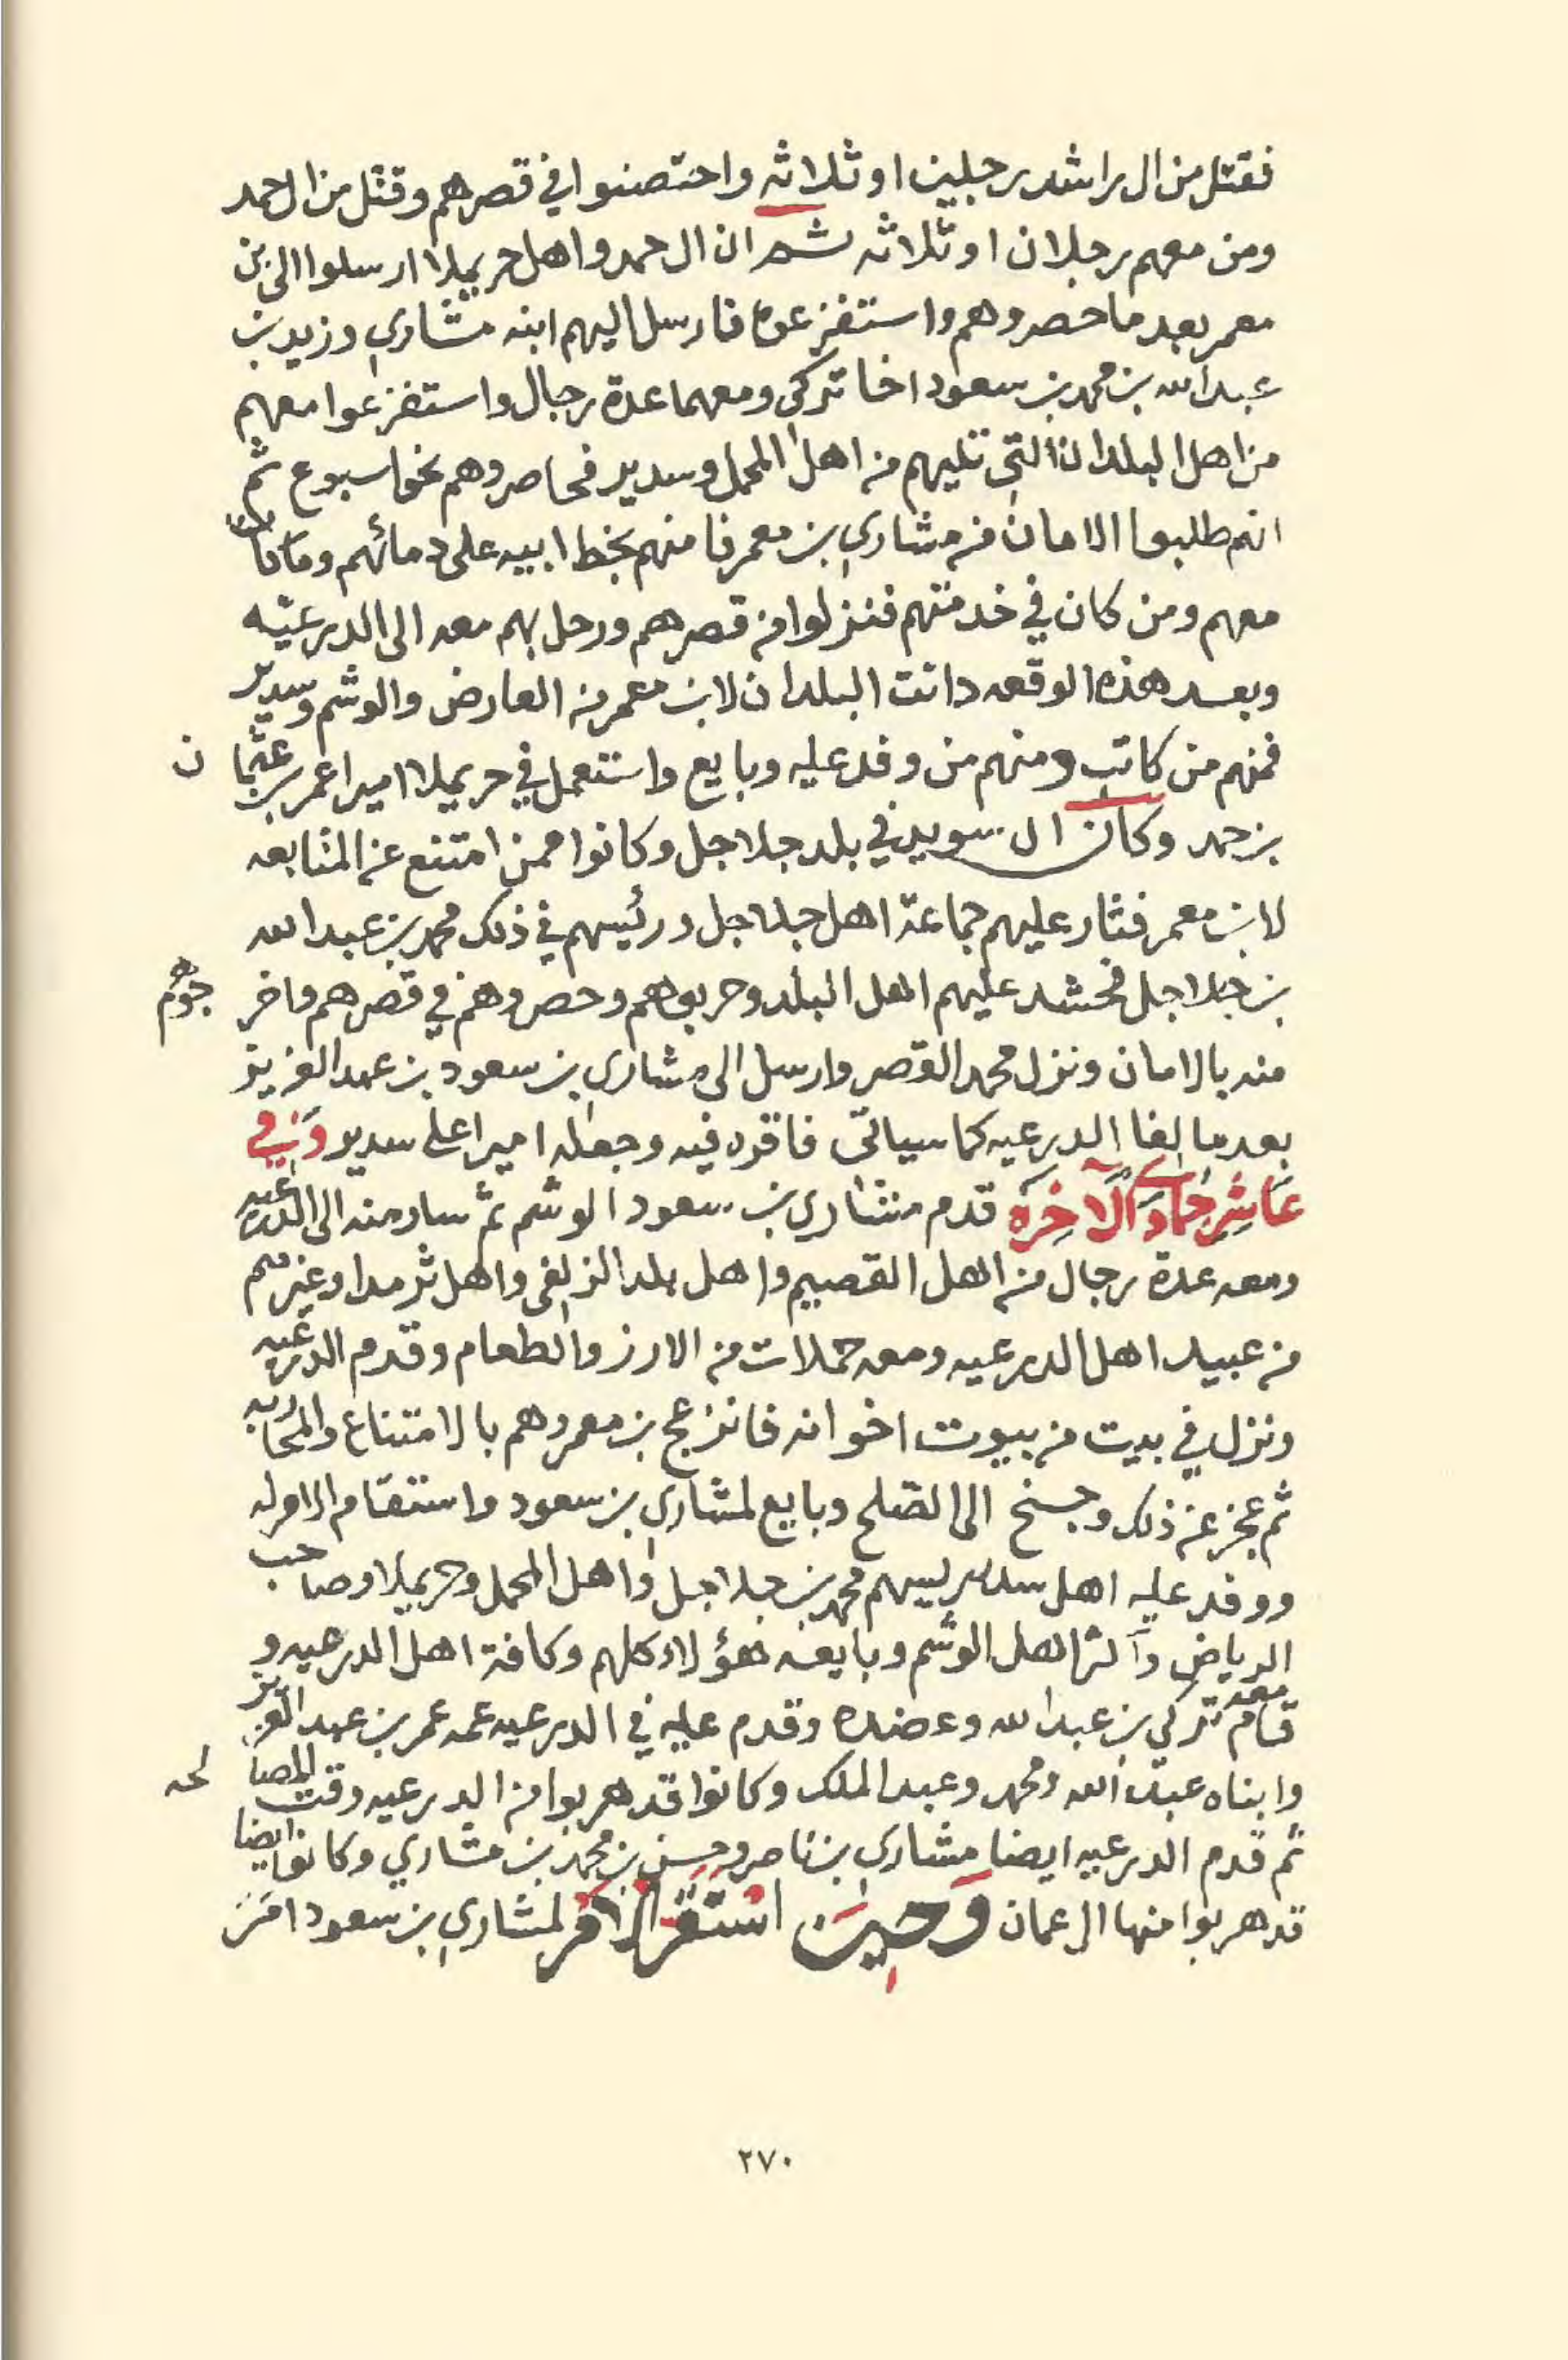 فقتل من ال راشد رجلين او ثلاثه واحتصنوا في قصرهم وقتل من ال حمد
ومن معهم رجلان او ثلاثه ثم ان ال حمد واهل حريملا ارسلوا الى بن
معمر بعد ما حصروهم واستفزعوه فارسل اليهم ابنه مشاري وزيد بن
عبدالله بن محمد بن سعود اخا تركي ومعهما عدة رجال واستفزعوا معهم
من اهل البلدان التي تليهم من اهل المحمل وسدير فحاصروهم نحو اسبوع ثم
انهم طلبوا الامان من مشاري بن معمر فامنهم بخط ابيه على دمائهم وما كان
معهم ومن كان في خدمتهم فنزلوا من قصرهم ورحل بهم معه الى الدرعيه
وبعد هذه الوقعه دانت البلدان لابن معمر من العارض والوشم وسدير
فمنهم من كاتب ومنهم من وفد عليه وبايع واستعمل في حريملا اميرا عمر بن عثمان
بن حمد وكان ال سويد في بلد جلاجل وكانوا ممن امتنع عن المتابعه
لابن معمر فثار عليهم جماعة اهل جلاجل ورئيسهم في ذلك محمد بن عبدالله
بن جلاجل فحشد عليهم اهل البلد وحربوهم وحصروهم في قصرهم فاخرجوهم
منه بالامان ونزل محمد القصر وارسل الى مشاري بن سعود بن عبد العزيز
بعد ما لفا الدرعيه كما سياتي فاقره فيه وجعله اميرا على سدير وَفِي
عَاشِر جمادى الآخِرَه قدم مشاري بن سعود الوشم ثم سار منه الى الدرعيه
ومعه عدة رجال من اهل القصيم واهل بلد الزلفي واهل ثرمدا وغيرهم
من عبيد اهل الدرعيه ومعه حملات من الارز والطعام وقدم الدرعيه
ونزل في بيت من بيوت اخوانه فانزعج بن معمر وهم بالامتناع والمحاربه
ثم عجز عن ذلك وجنح الى الصلح وبايع لمشاري بن سعود واستقام الامر له
ووفد عليه اهل سدير رييسهم محمد بن جلاجل واهل المحمل وحريملا وصاحب
الرياض وآكثر اهل الوشم وبايعه هؤلاء كلهم وكافة اهل الدرعيه و
قام معه تركي بن عبدالله وعضده وقدم عليه في الدرعيه عمه عمر بن عبد العزيز
وابناه عبدالله ومحمد وعبد الملك وكانوا قد هربوا من الدرعيه وقت المصالحه
ثم قدم الدرعيه ايضا مشاري بن ناصر وحسن بن محمد بن مشاري وكانوا ايضا
قد هربوا منها الى عمان وَحِين استَقَر الامر لمشاري بن سعود امر
٢٧٠